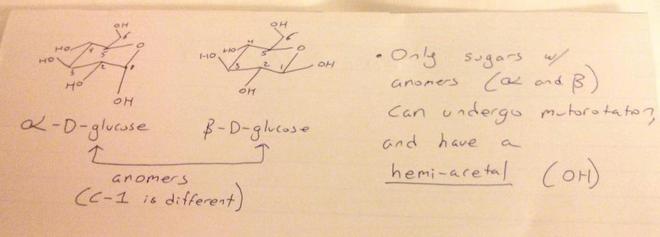 OH
6
HO
4
5
O
HO
3
2
1
HO
OH
α-D-glucose
OH
6
HO
HO
4
5
O
3
2
1
OH
OH
β-D-glucose
anomers
(C-1 is different)
• Only sugars w/
anomers (α and β)
can undergo mutorotation,
and have a
hemi-acetal (OH)